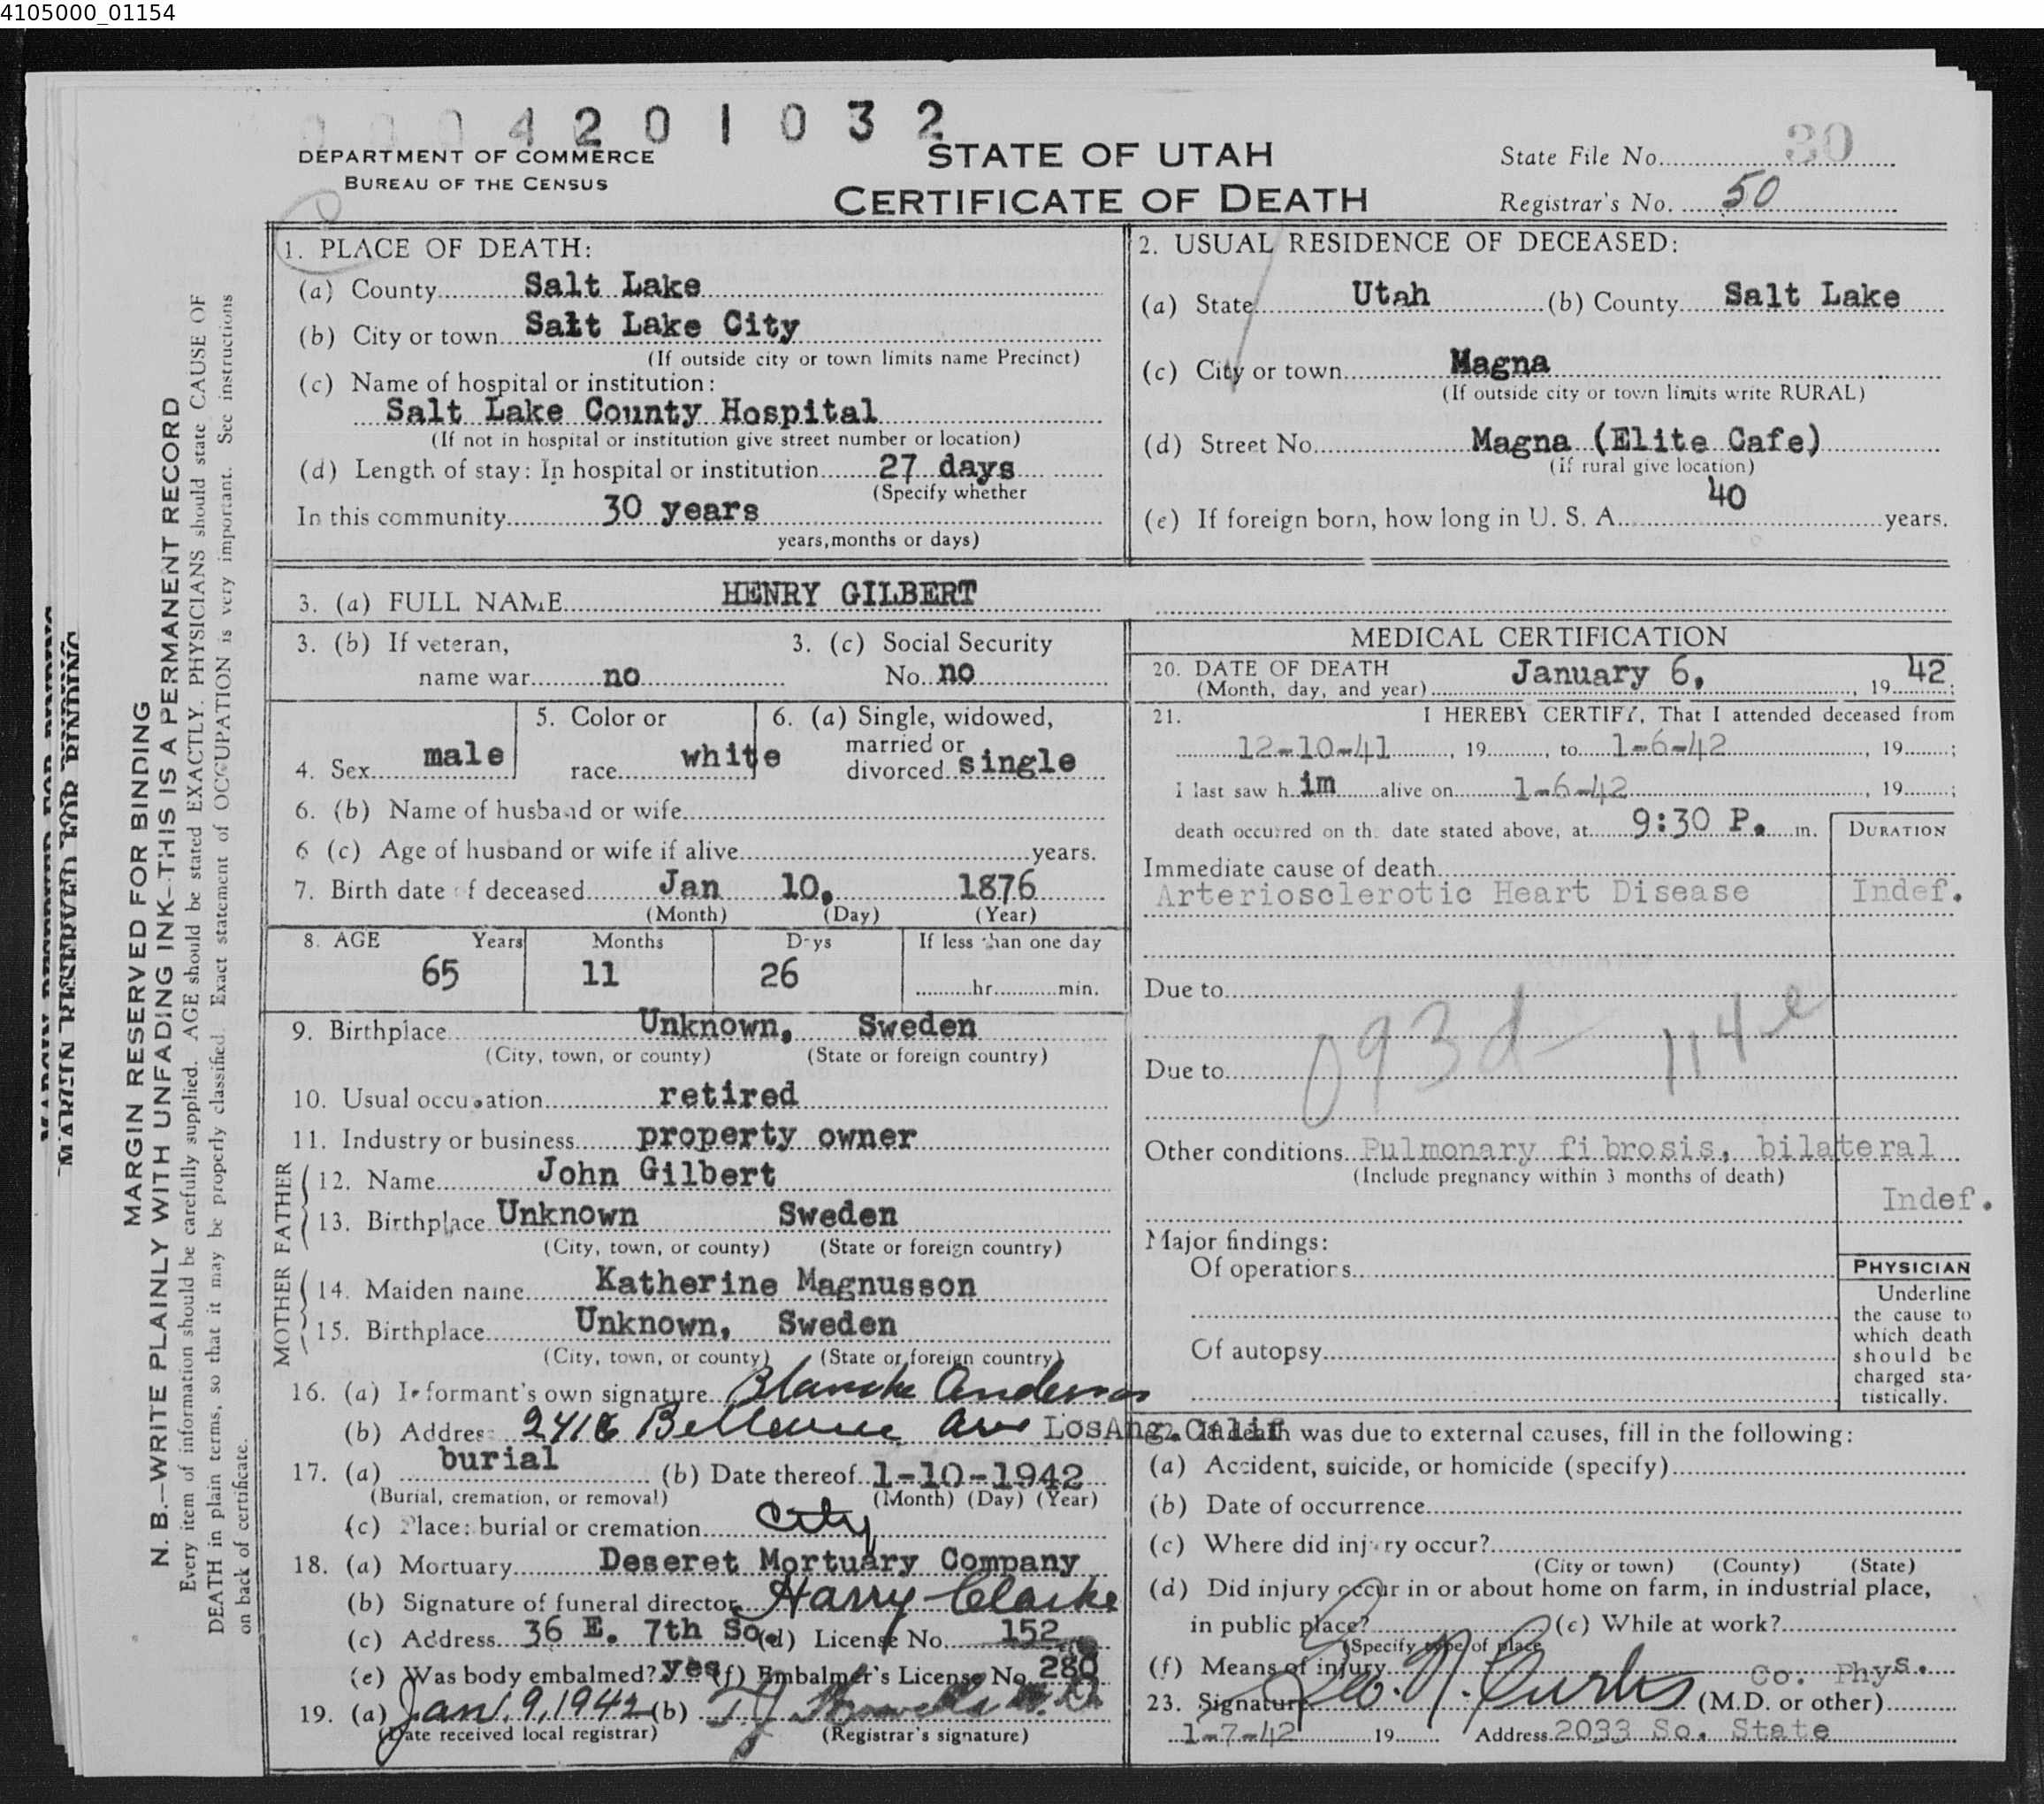 4105000_01154
0004201032
DEPARTMENT OF COMMERCE
BUREAU OF THE CENSUS
STATE OF UTAH
CERTIFICATE OF DEATH
State File No. 30
Registrar's No. 50
MARGIN RESERVED FOR BINDING
MARGIN RESERVED FOR BINDING
N. B.—WRITE PLAINLY WITH UNFADING INK—THIS IS A PERMANENT RECORD
Every item of information should be carefully supplied. AGE should be stated EXACTLY. PHYSICIANS should state CAUSE OF
DEATH in plain terms, so that it may be properly classified. Exact statement of OCCUPATION is very important. See instructions
on back of certificate.
1. PLACE OF DEATH:
(a) County Salt Lake
(b) City or town Salt Lake City
(If outside city or town limits name Precinct)
(c) Name of hospital or institution:
Salt Lake County Hospital
(If not in hospital or institution give street number or location)
(d) Length of stay: In hospital or institution 27 days
(Specify whether
In this community 30 years
years, months or days)
2. USUAL RESIDENCE OF DECEASED:
(a) State Utah (b) County Salt Lake
(c) City or town Magna
(If outside city or town limits write RURAL)
(d) Street No. Magna (Elite Cafe)
(if rural give location)
(e) If foreign born, how long in U. S. A. 40 years.
3. (a) FULL NAME HENRY GILBERT
3. (b) If veteran,
name war no
3. (c) Social Security
No. no
4. Sex male
5. Color or
race white
6. (a) Single, widowed,
married or
divorced single
6. (b) Name of husband or wife
6 (c) Age of husband or wife if alive years.
7. Birth date of deceased Jan 10, 1876
(Month) (Day) (Year)
8. AGE Years Months Days If less than one day
65 11 26 hr. min.
9. Birthplace Unknown, Sweden
(City, town, or county) (State or foreign country)
10. Usual occupation retired
11. Industry or business property owner
FATHER
12. Name John Gilbert
13. Birthplace Unknown Sweden
(City, town, or county) (State or foreign country)
MOTHER
14. Maiden name Katherine Magnusson
15. Birthplace Unknown, Sweden
(City, town, or county) (State or foreign country)
16. (a) Informant's own signature Blanche Anderson
(b) Address 2416 Bellevue Ave LosAng. Calif
17. (a) burial (b) Date thereof 1-10-1942
(Burial, cremation, or removal) (Month) (Day) (Year)
(c) Place: burial or cremation City
18. (a) Mortuary Deseret Mortuary Company
(b) Signature of funeral director Harry Clarke
(c) Address 36 E. 7th So. (d) License No. 152
(e) Was body embalmed? yes (f) Embalmer's License No. 280
19. (a) Jan. 9, 1942 (b)
(Date received local registrar) (Registrar's signature)
MEDICAL CERTIFICATION
20. DATE OF DEATH
(Month, day, and year) January 6, 1942;
21. I HEREBY CERTIFY, That I attended deceased from
12-10-41, 19, to 1-6-42, 19;
I last saw him alive on 1-6-42, 19;
death occurred on the date stated above, at 9:30 P. m.
DURATION
Immediate cause of death
Arteriosclerotic Heart Disease Indef.
Due to
093d 114e
Due to
Other conditions Pulmonary fibrosis, bilateral
(Include pregnancy within 3 months of death)
Indef.
Major findings:
Of operations
Of autopsy
PHYSICIAN
Underline
the cause to
which death
should be
charged sta-
tistically.
22. If death was due to external causes, fill in the following:
(a) Accident, suicide, or homicide (specify)
(b) Date of occurrence
(c) Where did injury occur?
(City or town) (County) (State)
(d) Did injury occur in or about home on farm, in industrial place,
in public place? (e) While at work?
(Specify type of place)
(f) Means of injury Co. Phys.
23. Signature Geo. N. Curtis (M.D. or other)
1-7-42 19 Address 2033 So. State